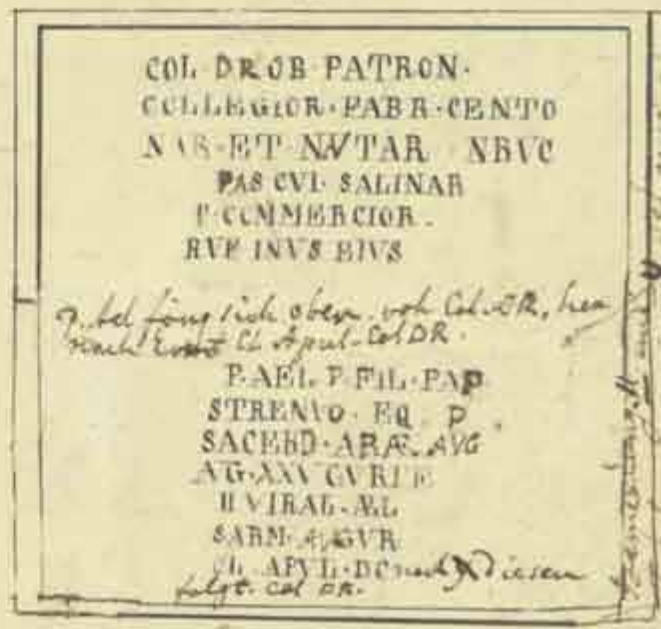 COL DROB·PATRON·
COLLEGIOR·FABR·CENTO
NAR·ET NAVTAR NBVC
PAS CVI· SALINAR
P COMMERCIOR.
RVF INVS EIVS
sich oben Col. DR,
nach Apul. Col DR.
P. AEL. P. FIL·PAP
STRENVO· EQ P
SACERD·ARÆ·AVG
II VIRAL·ÆL
SARM·AVGVR
CL·APVL·DC nach diesem
folgt. Col DR.